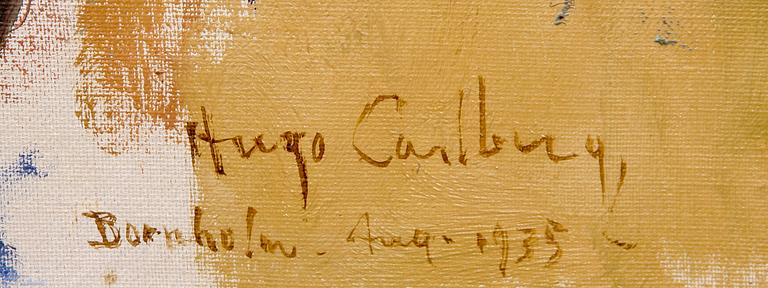 Hugo Carlberg,
Bornholm. Aug. 1935